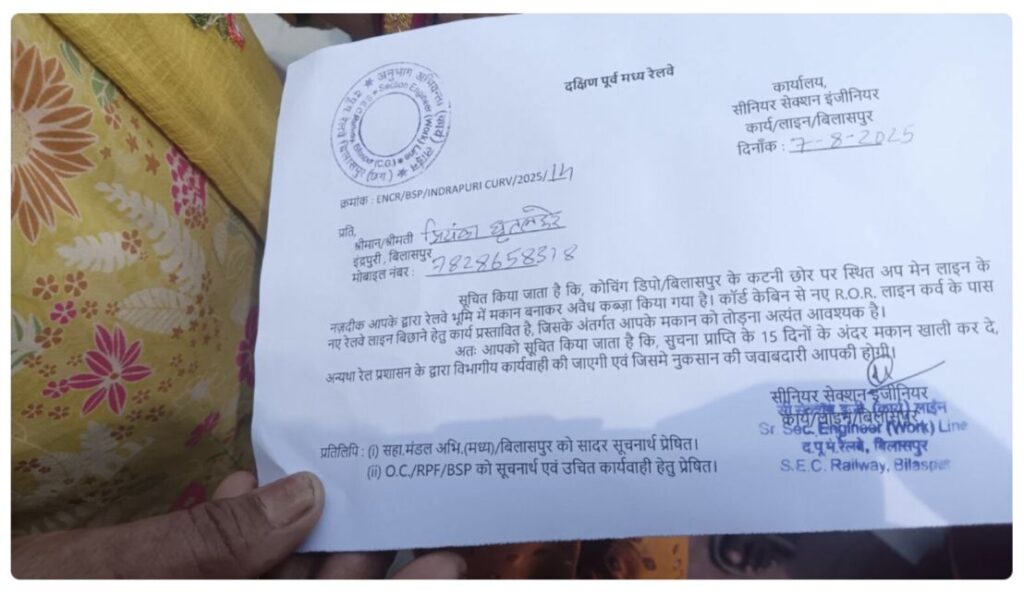 दक्षिण पूर्व मध्य रेलवे
कार्यालय,
सीनियर सेक्शन इंजीनियर
कार्य/लाइन/बिलासपुर
दिनाँक : 7-8-2025
क्रमांक : ENCR/BSP/INDRAPURI CURV/2025/14
प्रति,
श्रीमान/श्रीमती प्रियंका
इंद्रपुरी, बिलासपुर
मोबाइल नंबर : 7828658318
सूचित किया जाता है कि, कोचिंग डिपो/बिलासपुर के कटनी छोर पर स्थित अप मेन लाइन के
नज़दीक आपके द्वारा रेलवे भूमि में मकान बनाकर अवैध कब्ज़ा किया गया है। कॉर्ड केबिन से नए R.O.R. लाइन कर्व के पास
नए रेलवे लाइन बिछाने हेतु कार्य प्रस्तावित है, जिसके अंतर्गत आपके मकान को तोड़ना अत्यंत आवश्यक है।
अतः आपको सूचित किया जाता है कि, सुचना प्राप्ति के 15 दिनों के अंदर मकान खाली कर दे,
अन्यथा रेल प्रशासन के द्वारा विभागीय कार्यवाही की जाएगी एवं जिसमे नुकसान की जवाबदारी आपकी होगी।
सीनियर सेक्शन इंजीनियर
कार्य/लाइन/बिलासपुर
(कार्य) लाईन
Sr. Sec. Engineer (Work) Line
द.पू.म.रेलवे, बिलासपुर
S.E.C. Railway, Bilaspur
प्रतिलिपि : (i) सहा.मंडल अभि.(मध्य)/बिलासपुर को सादर सूचनार्थ प्रेषित।
(ii) O.C./RPF/BSP को सूचनार्थ एवं उचित कार्यवाही हेतु प्रेषित।
अनुभाग अभियन्ता (कार्य) लाईन
Section Engineer (Work) Line
Bilaspur (C.G.)